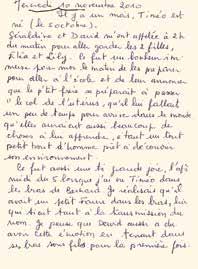 Mercredi 10 novembre 2010
Il y a un mois, Timéo est
né (le 8 octobre).
Géraldine et David m'ont appelée à 2h
du matin pour aller garder les 2 filles,
et Lily. Ce fut un bonheur im-
mense pour moi le matin de les préparer
pour aller à l'école et de leur annoncer
que le p'tit frère se préparait à passer
"le col de l'utérus", qu'il lui fallait
un peu de temps pour arriver dans le monde
qu'elles auraient aussi beaucoup de
choses à lui apprendre, à tout un tout
petit bout d'homme prêt à découvrir
son environnement.
Ce fut aussi une si grande joie, l'après
midi de 5 lorsque j'ai vu Timéo dans
les bras de Bernard. Je réalisais qu'il
avait un petit dans les bras, lui
qui tient tant à la transmission du
nom. Je pense que David aussi a du
avoir cette émotion en tenant dans
ses bras son fils pour la première fois.